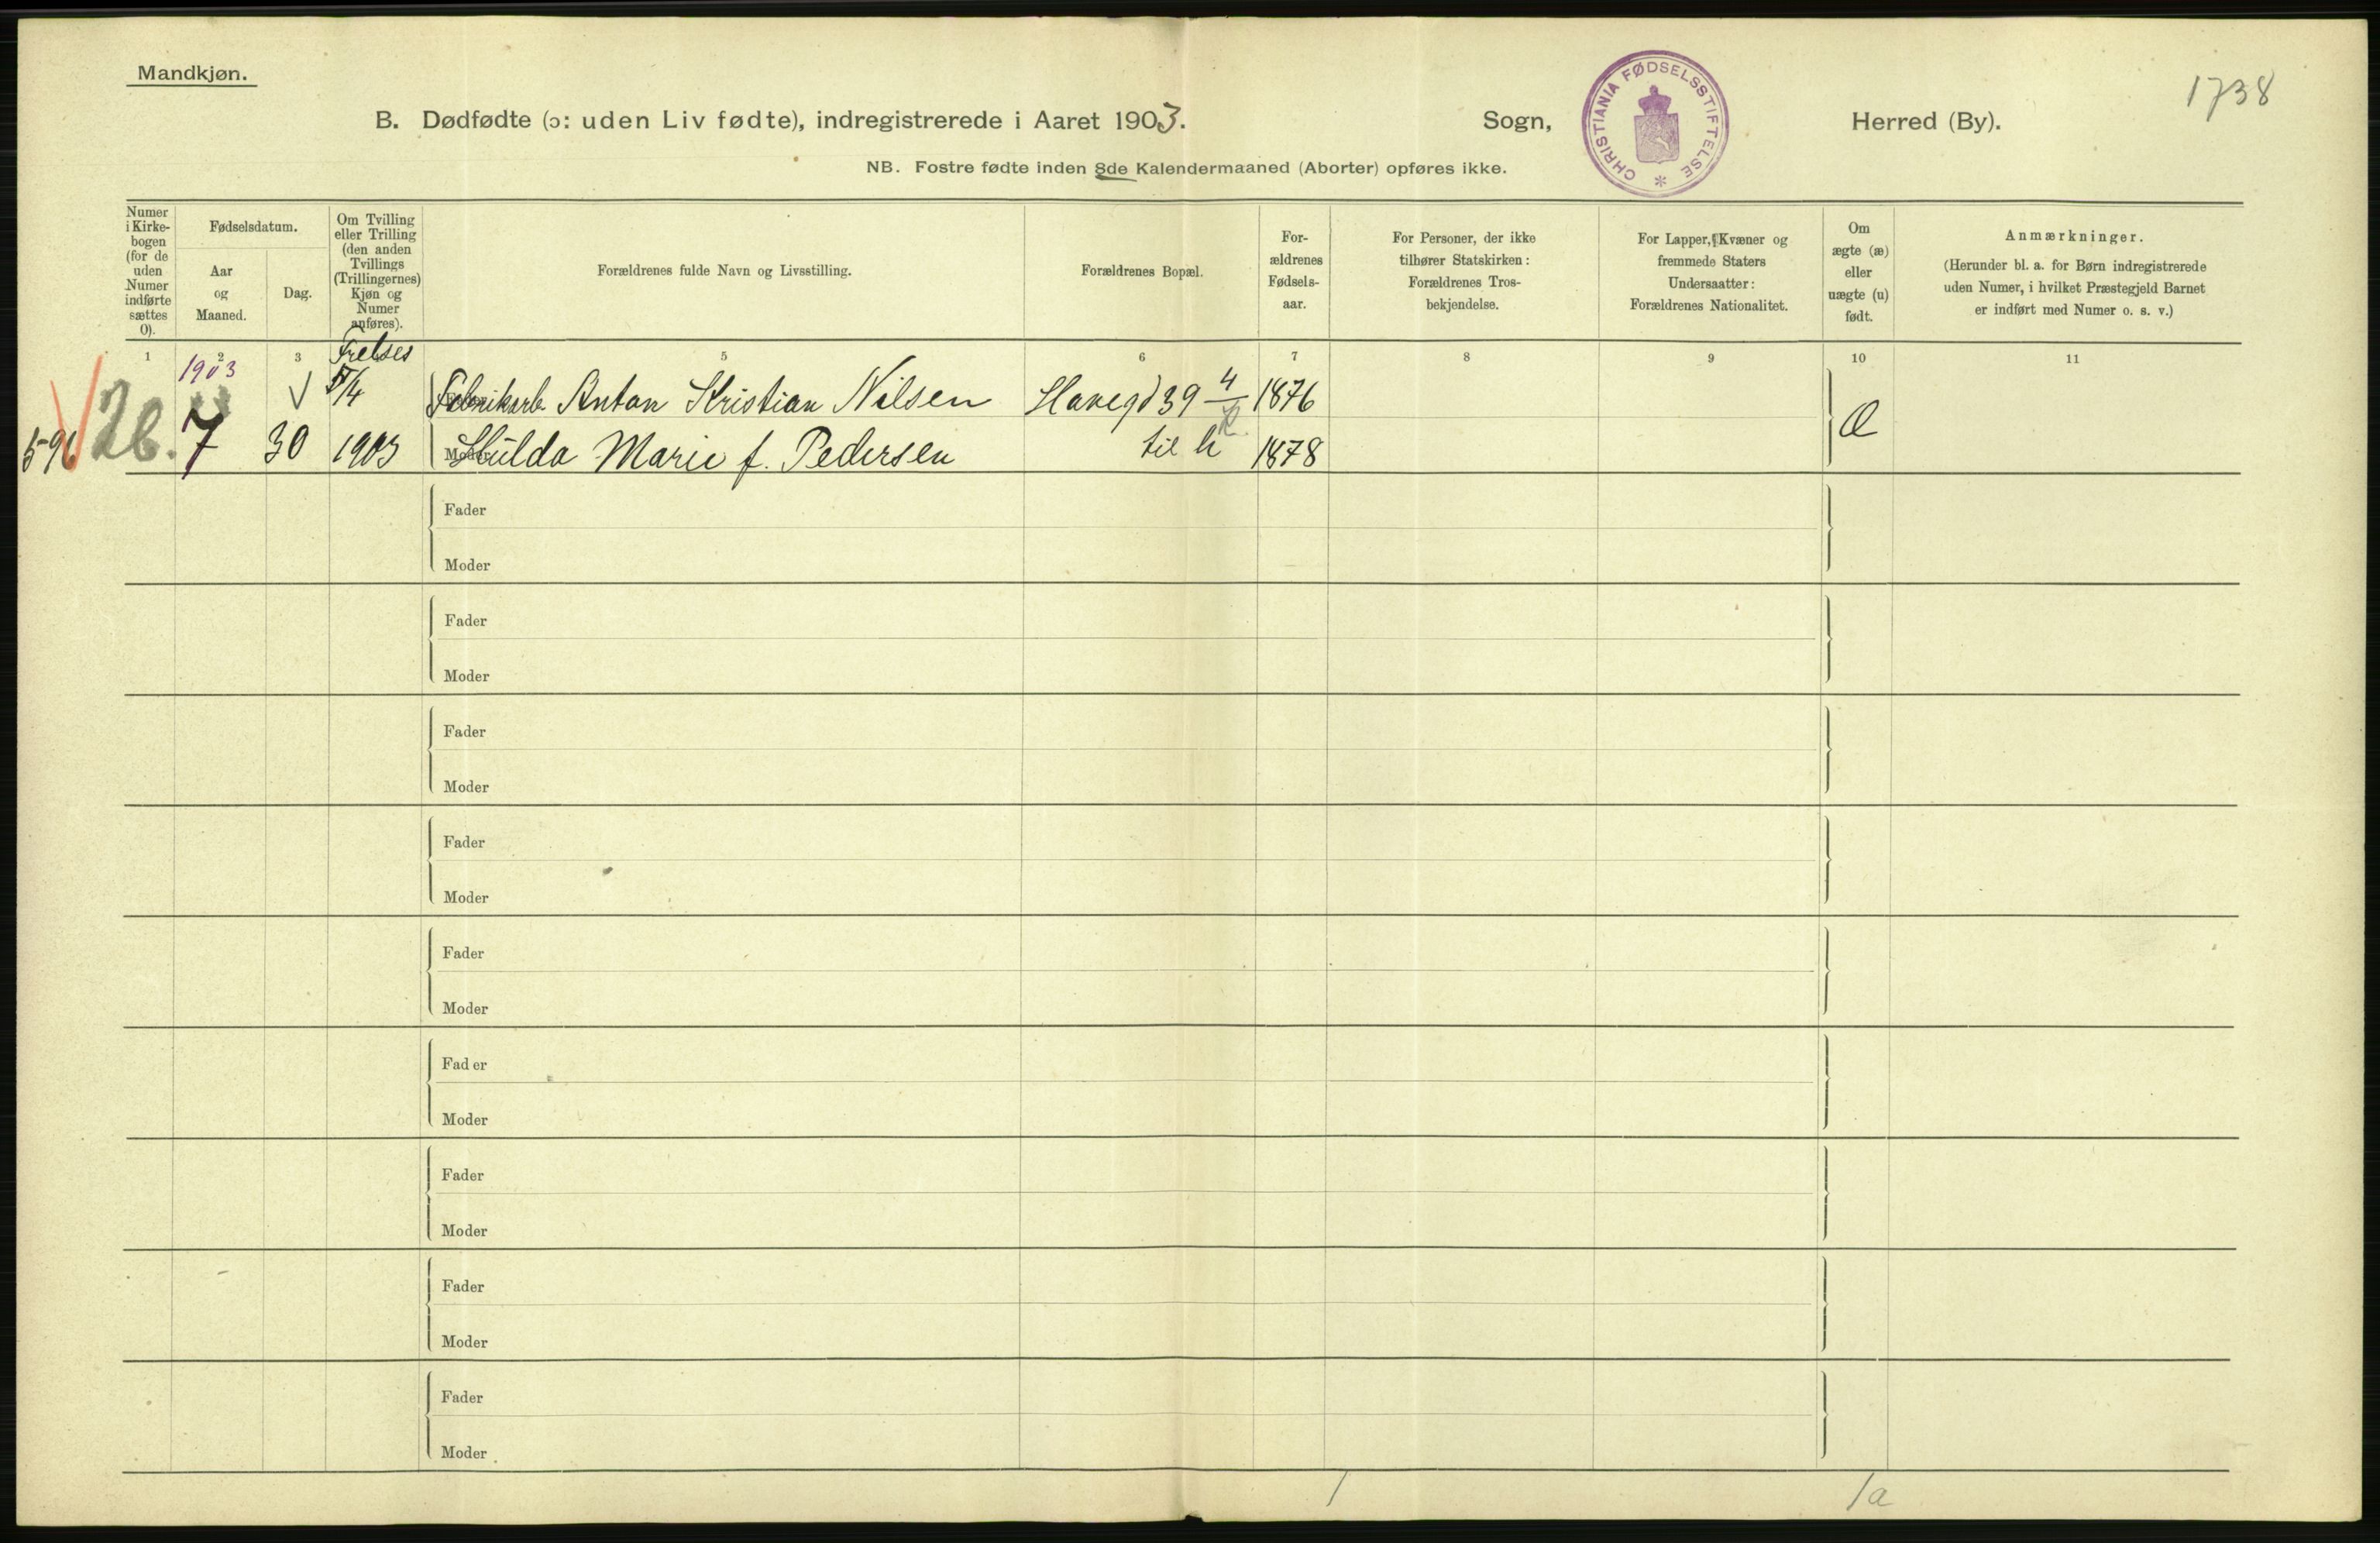 Mandkjøn.
1738
B. Dødfødte (ɔ: uden Liv fødte), indregistrerede i Aaret 1903.
Sogn,
CHRISTIANIA FØDSELSSTIFTELSE *
Herred (By).
NB. Fostre fødte inden 8de Kalendermaaned (Aborter) opføres ikke.
Numer
i Kirke-
bogen
(for de
uden
Numer
indførte
sættes
0).
Fødselsdatum.
Aar
og
Maaned.
Dag.
Om Tvilling
eller Trilling
(den anden
Tvillings
(Trillingernes)
Kjøn og
Numer
anføres).
Forældrenes fulde Navn og Livsstilling.
Forældrenes Bopæl.
For-
ældrenes
Fødsels-
aar.
For Personer, der ikke
tilhører Statskirken:
Forældrenes Tros-
bekjendelse.
For Lapper, Kvæner og
fremmede Staters
Undersaatter:
Forældrenes Nationalitet.
Om
ægte (æ)
eller
uægte (u)
født.
Anmærkninger.
(Herunder bl. a. for Børn indregistrerede
uden Numer, i hvilket Præstegjeld Barnet
er indført med Numer o. s. v.)
1 2 3 5 6 7 8 9 10 11
1903
Fabrikarb. Anton Kristian Nilsen Havegd 39 4 1876
596 26. 7 30 1903 Moder Hulda Marie f. Pedersen til h 1878 Æ
Fader
Moder
Fader
Moder
Fader
Moder
Fader
Moder
Fader
Moder
Fader
Moder
Fader
Moder
Fader
Moder
Fader
Moder
1 1a